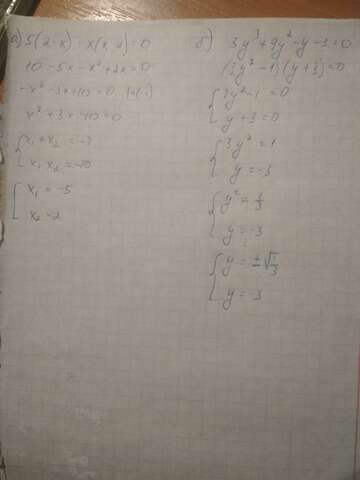 а) 5(2-x) - x(x-2)=0
10 - 5x - x² + 2x = 0
-x² - 3x + 10 = 0 |:(-1)
x² + 3x - 10 = 0
{ x₁ + x₂ = -3
x₁ x₂ = -10
[ x₁ = -5
x₂ = 2
б) 3y³ + 9y² - y - 3 = 0
(3y² - 1)(y + 3) = 0
{ 3y² - 1 = 0
y + 3 = 0
{ 3y² = 1
y = -3
{ y² = 1/3
y = -3
{ y = ±√1/3
y = -3